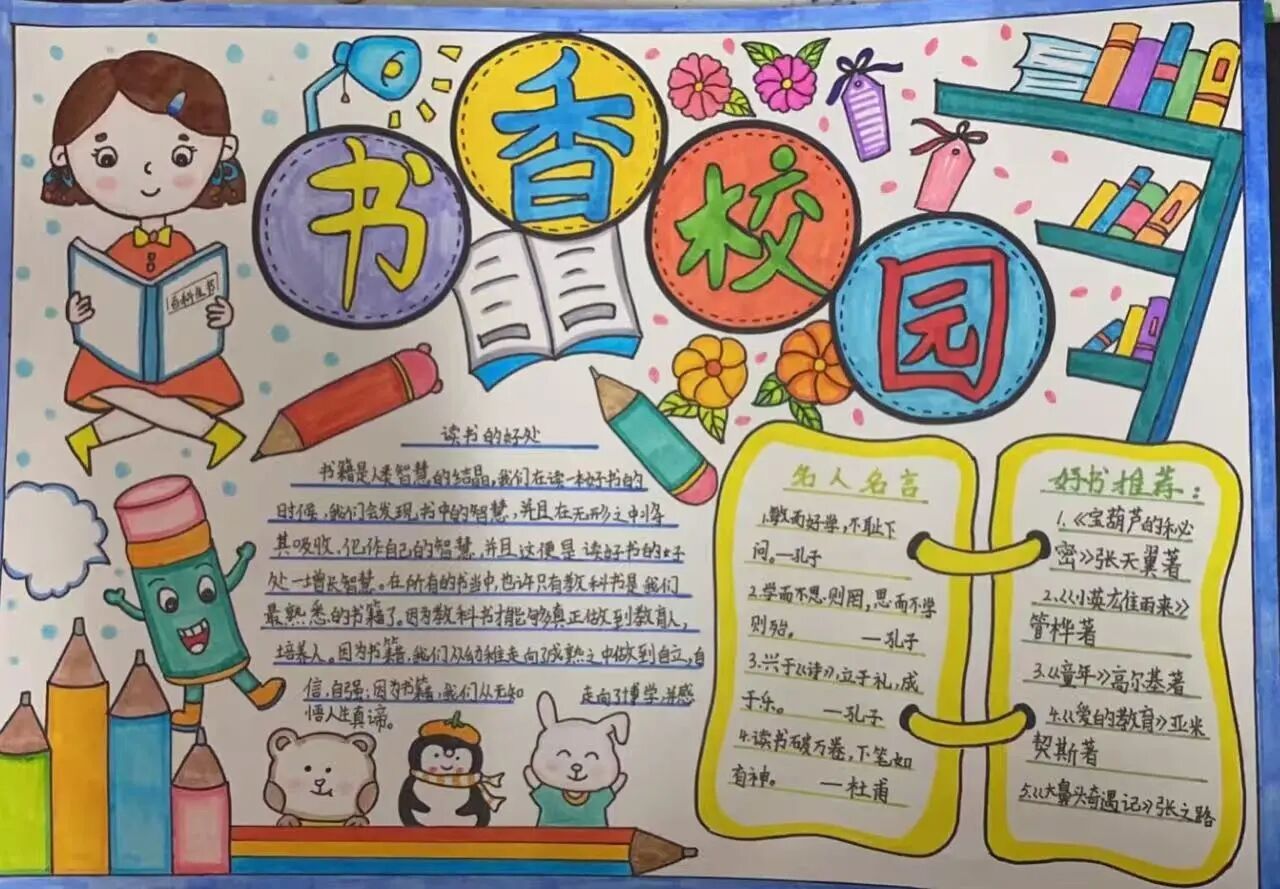 书香校园
读书的好处
书籍是人类智慧的结晶,我们在读一本好书的
时候,我们会发现书中的智慧,并且在无形之中将
其吸收,化作自己的智慧,并且这便是读好书的好
处一增长智慧。在所有的书当中,也许只有教科书是我们
最熟悉的书籍了。因为教科书才能够真正做到教育人,
培养人。因为书籍,我们从幼稚走向了成熟之中做到自立,自
信,自强;因为书籍,我们从无知 走向了博学,并感
悟人生真谛。
名人名言
1.敏而好学,不耻下
问。—孔子
2.学而不思则罔,思而不学
则殆。 —孔子
3.兴于《诗》,立于礼,成
于乐。 —孔子
4.读书破万卷,下笔如
有神。 —杜甫
好书推荐:
1.《宝葫芦的秘
密》张天翼著
2.《小英雄雨来》
管桦著
3.《童年》高尔基著
4.《爱的教育》亚米
契斯著
5.《大鼻头奇遇记》张之路